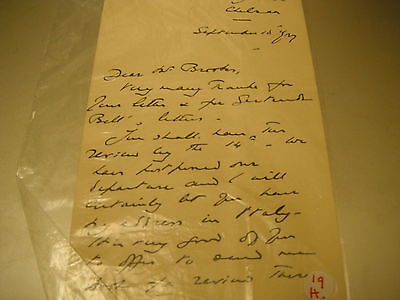 Chelsea
September 10th
Dear Mr. Brooks,
Very many thanks for
your letter & for Gertrude
Bell's letters.
You shall have the
review by the 14th. We
have postponed our
departure and I will
certainly let you have
my address in Italy.
It is very good of you
to offer to send me
books for review there
19
H.